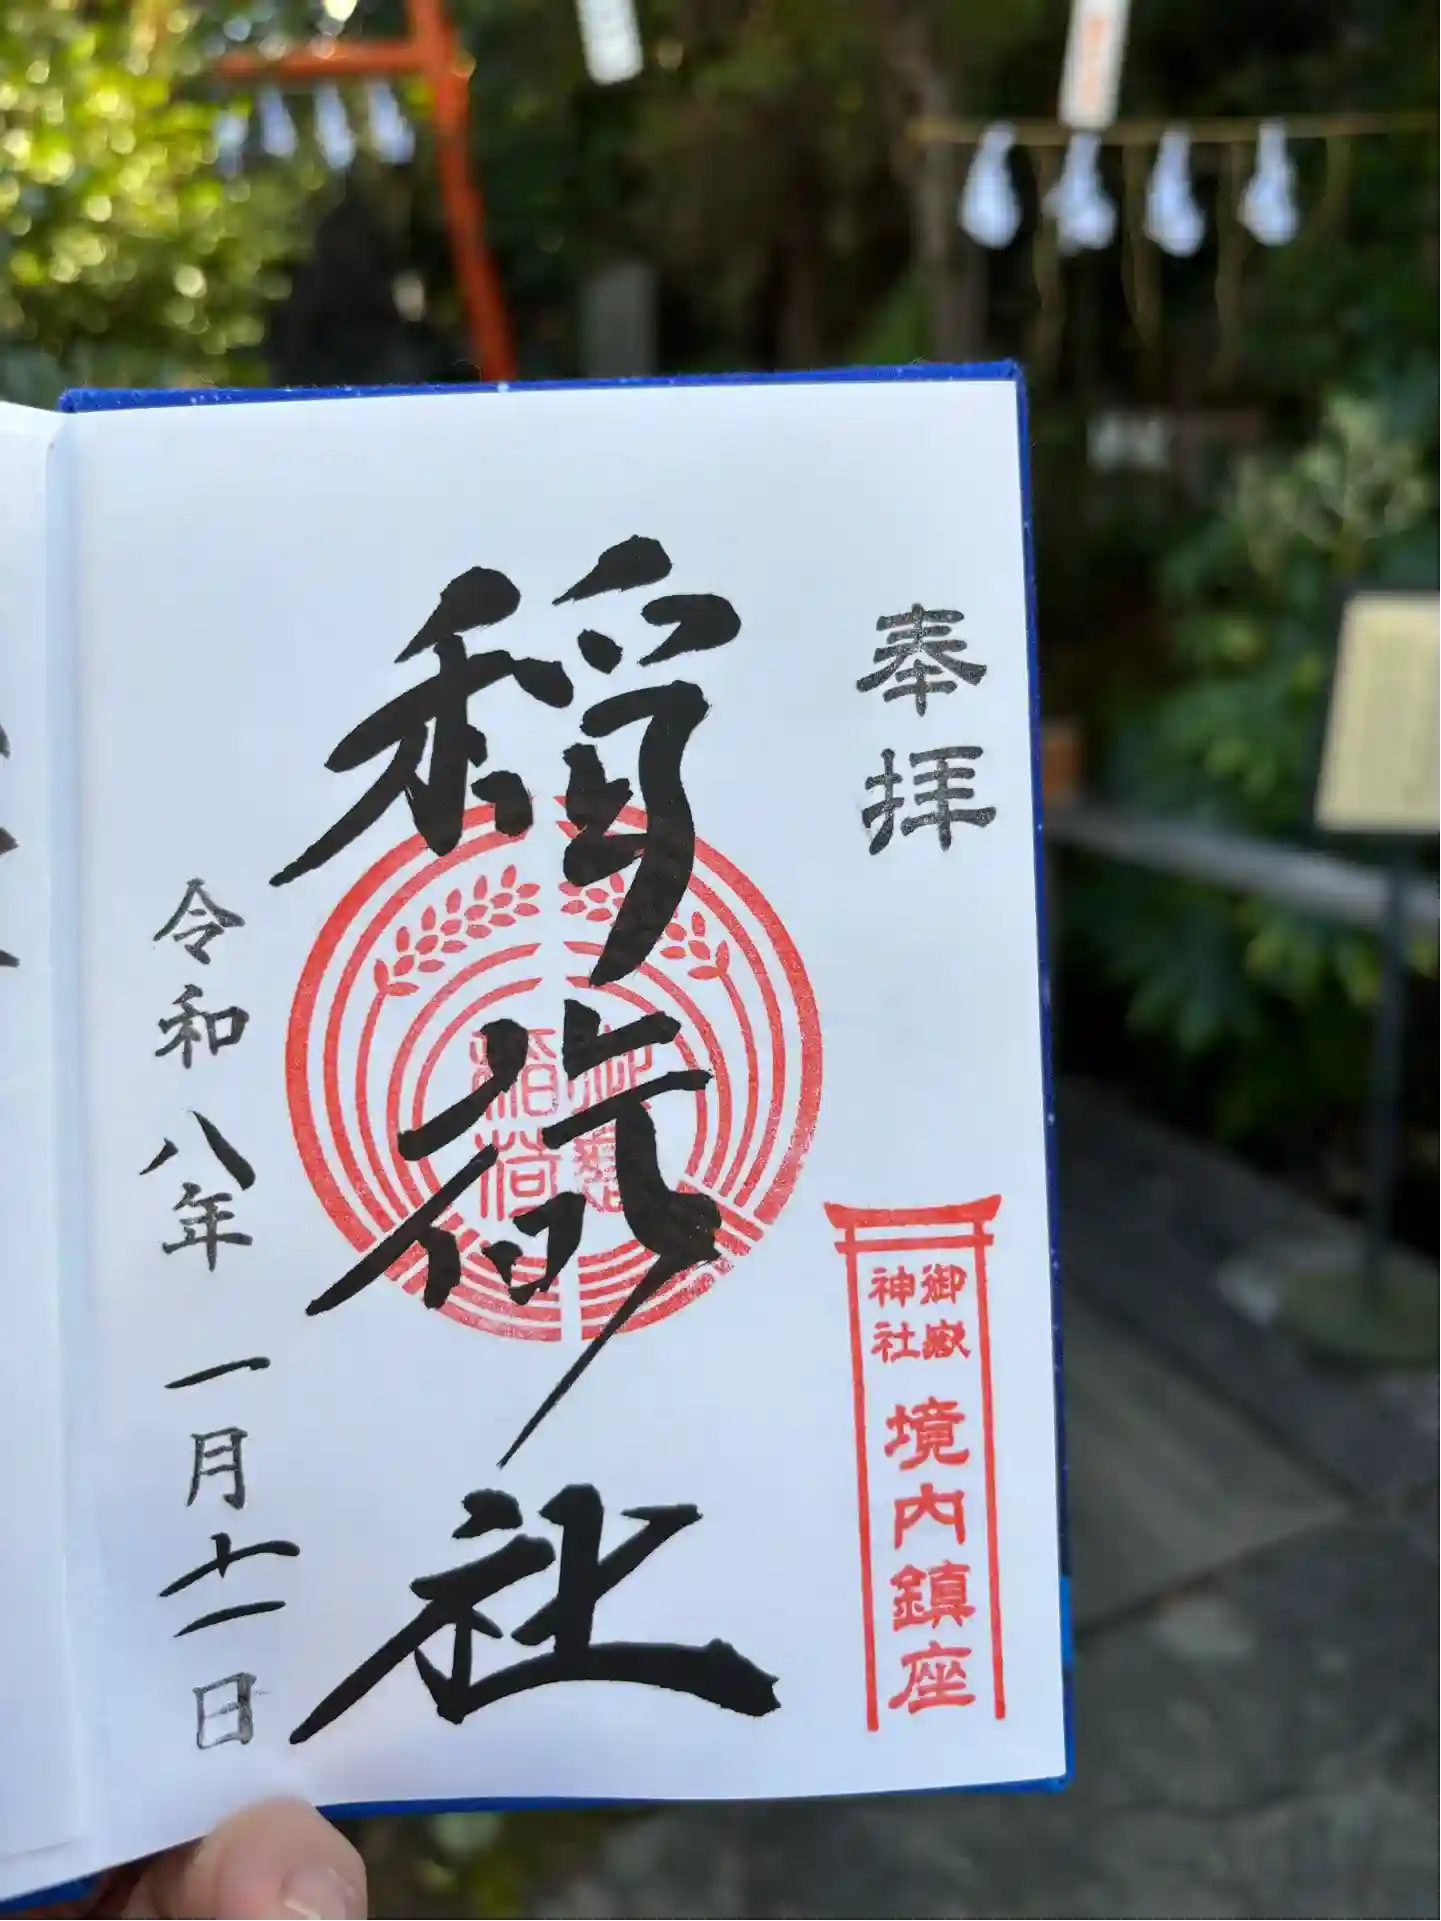 奉拝
御嶽
神社
境内鎮座
稲荷社
稲荷
令和八年一月十一日